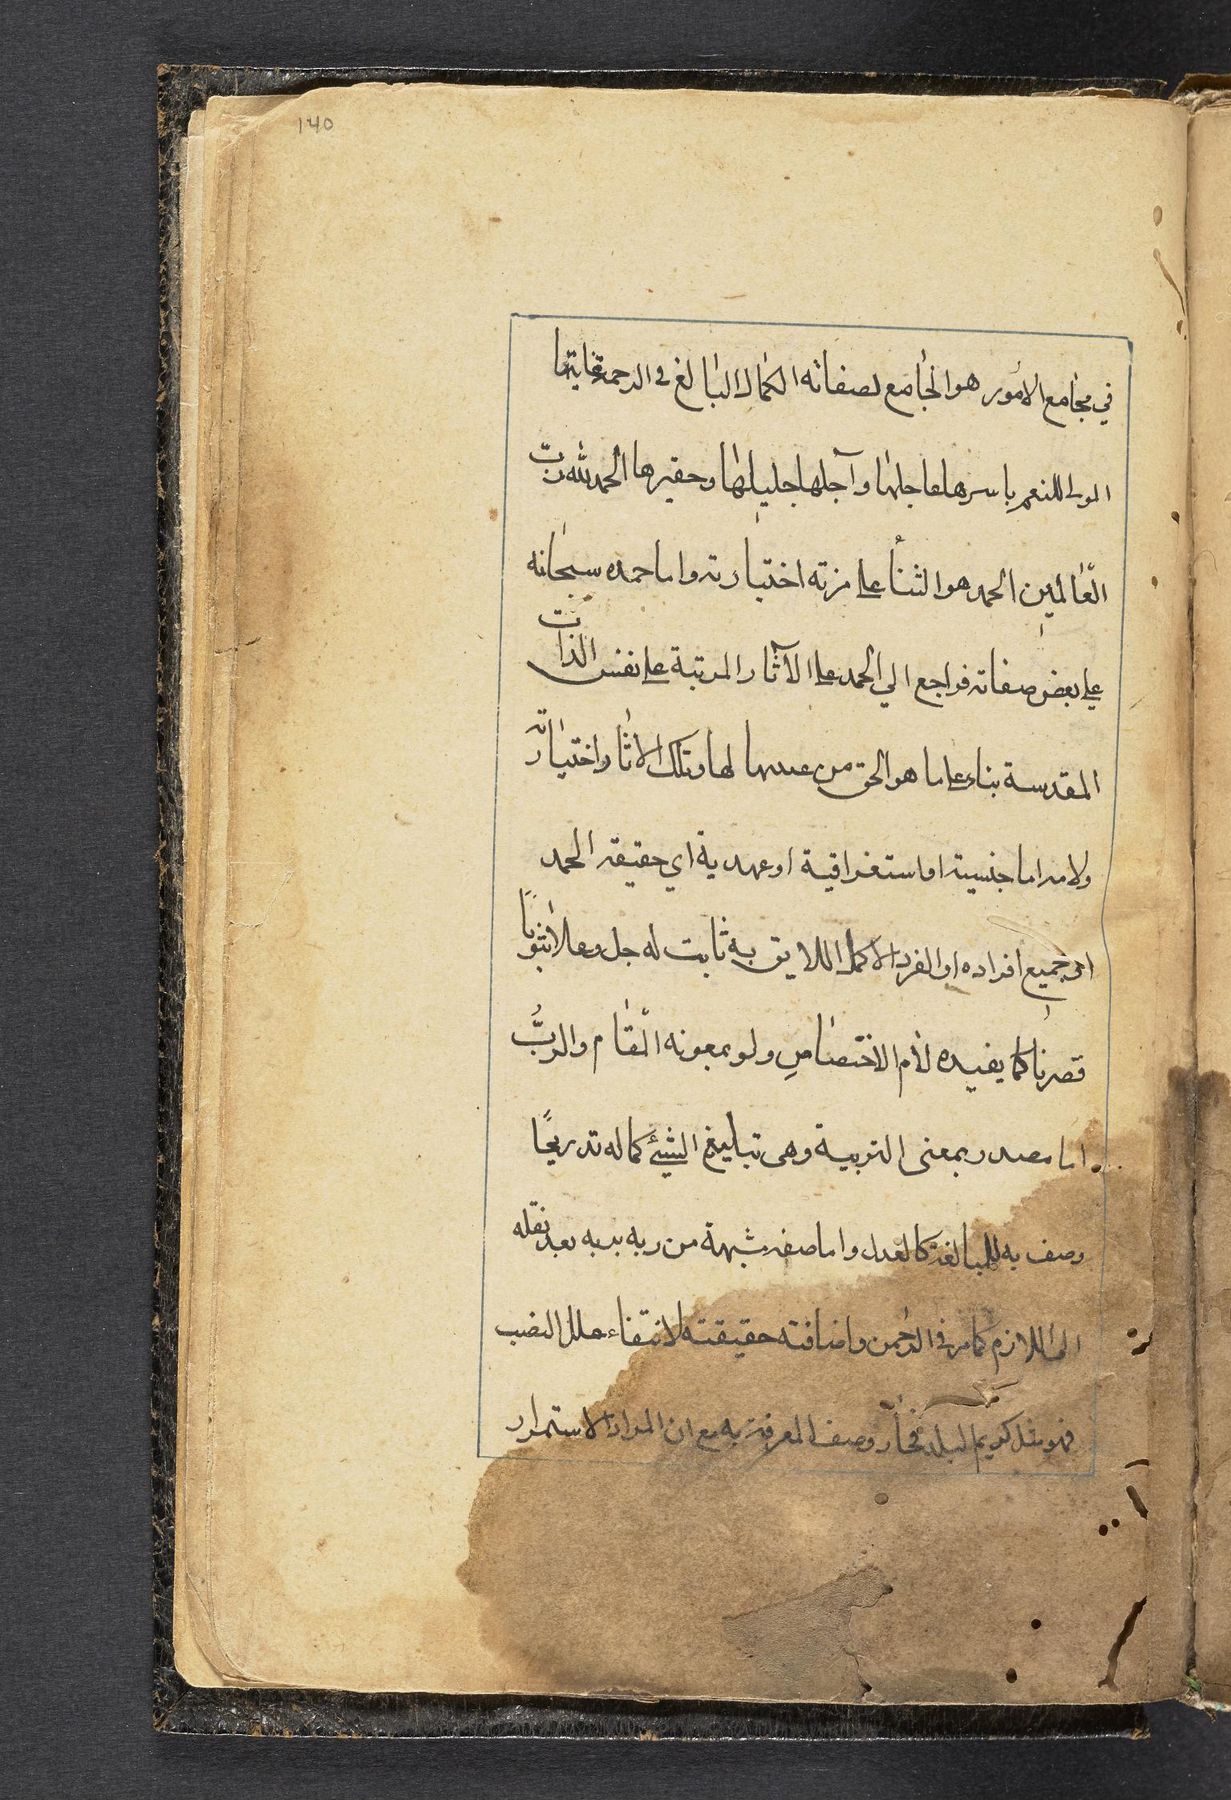 140
في مجامع الامور هو الجامع لصفاته الكمال البالغ في الرحمة غايتها
المولي للنعم باسرها عاجلها وآجلها جليلها وحقيرها الحمد لله رب
العالمين الحمد هو الثناء على مزية اختيارية واما حمده سبحانه
على بعض صفاته فراجع الي الحمد على الآثار المرتبة على نفس الذات
المقدسة بناء على ما هو الحق من لها وتلك الاثار اختيارية
ولامه اما جنسية او استغراقية او عهدية اي حقيقة الحمد
او جميع افراده او الفرد الاكمل اللايق به ثابت له جل وعلا ثبوتًا
قصريا كما يفيده لام الاختصاص ولو بمعونة المقام والربُّ
اما مصدر بمعنى التربية وهي تبليغ الشيئ كماله تدريجًا
وصف به للمبالغة كالعدل واما صفة مشبهة من ربه يربه بعد نقله
الى اللازم كما مر في الرحمن واضافته حقيقته لانتفاء عمل النصب
فهو مثل كريم البلد فجاز وصف المعرفة به مع ان المراد الاستمرار